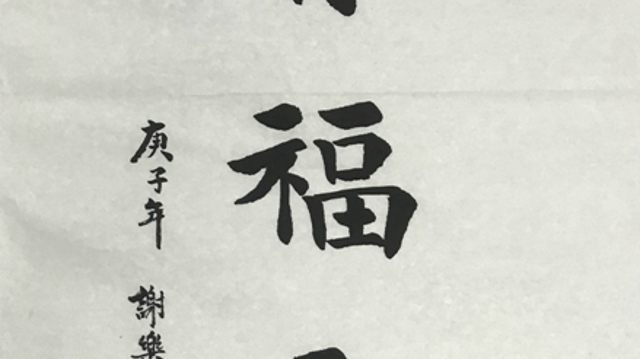 福
庚子年 謝樂